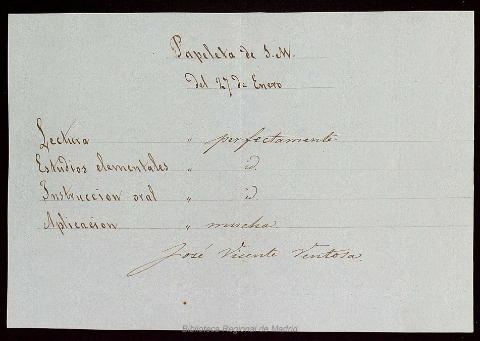 Papeleta de S. M.
del 27 de Enero
Lectura " perfectamente.
Estudios elementales " id.
Instruccion oral " id.
Aplicacion " mucha.
José Vicente Ventosa.
Biblioteca Regional de Madrid